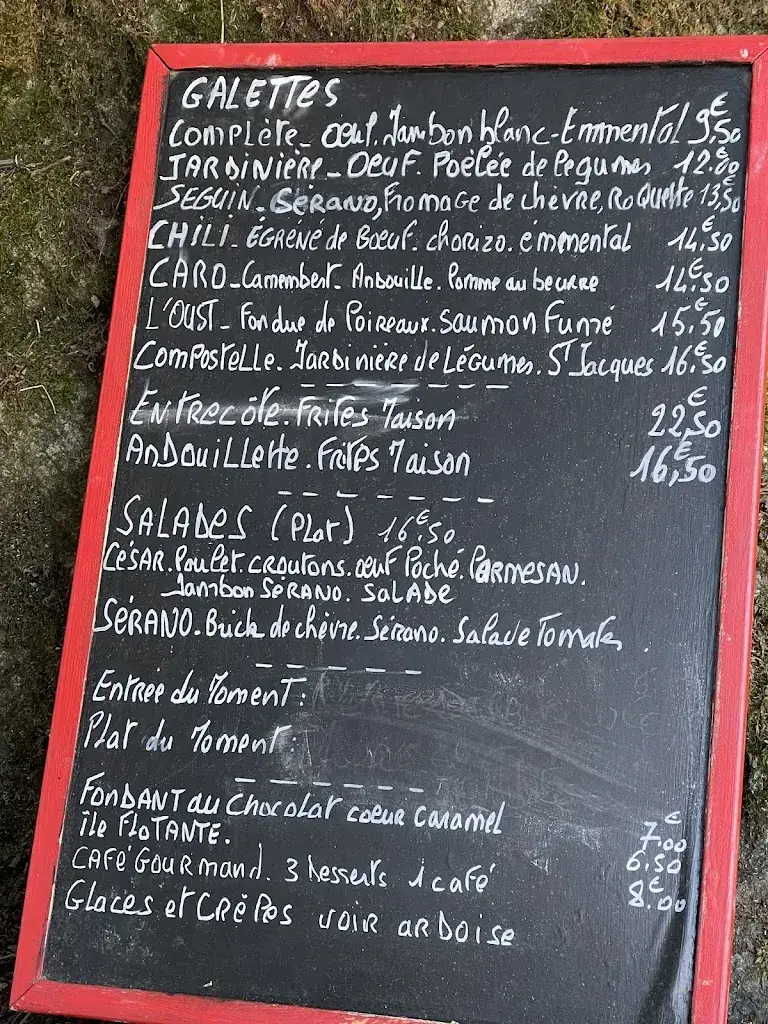 GALETTES
COMPLÈTE_ OEUF. Jambon blanc-Emmental 9€,50
JARDINIÈRE_OEUF. Poêlée de légumes 12€.00
SEGUIN_ SÉRANO, Fromage de chèvre, RoQuette 13€,50
CHILI_ ÉGRENÉ de BOEUF. chorizo. emmental 14€.50
CARO_Camembert_ Andouille. Pomme au beurre 14€.50
L'OUST_ Fondue de Poireaux. Saumon Fumé 15€.50
COMPOSTELLE. Jardinière de Légumes. ST Jacques 16€.50
ENTRECÔTE. FRITES Maison 22€,50
ANDOUILLETTE. FRITES Maison 16€,50
SALADES (PLAT) 16€.50
CÉSAR. Poulet. croutons. oeuf Poché. PARMESAN.
Jambon SÉRANO. SALADE
SÉRANO. Brick de chèvre. Sérano. Salade Tomates.
Entrée du Moment:
Plat du Moment:
FONDANT au Chocolat coeur caramel 7€.00
île FLOTANTE. 6.50
CAFÉ GOURMAND. 3 desserts 1 café 8€.00
Glaces et CRÊPES VOIR ARDOISE